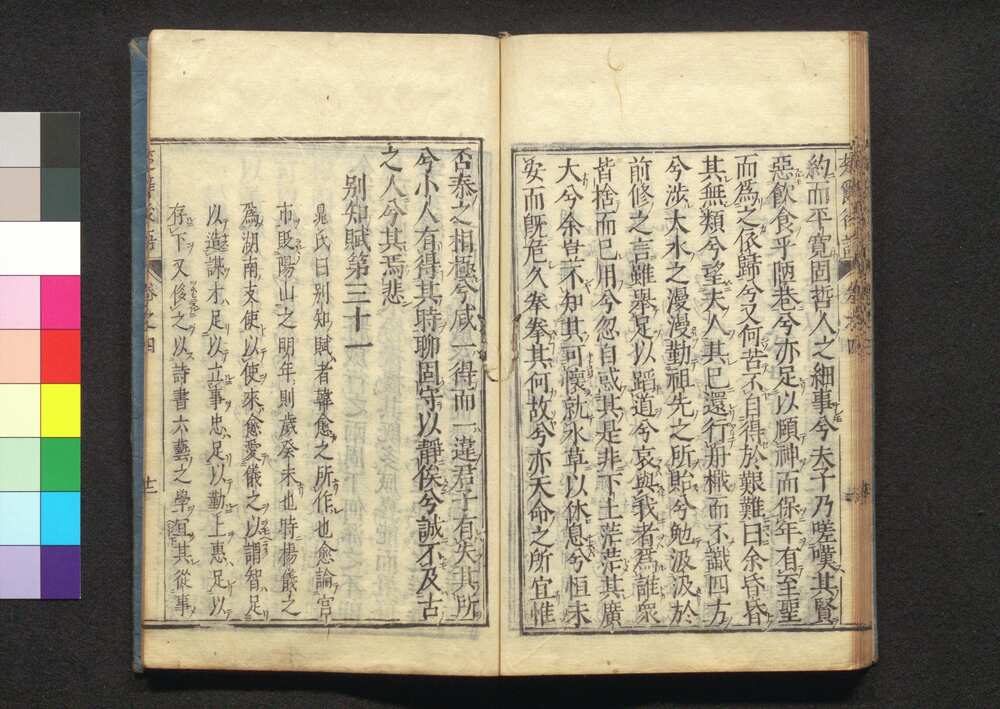 約而平寬固哲人之細事兮夫子乃嗟嘆其賢
惡飲食乎陋巷兮亦足以頤神而保年有至聖
而爲之依歸兮又何苦不自得於艱難曰余昏昏
其無類兮望夫人其已還行舟檝而不識四方
兮涉大水之漫漫勤祖先之所貽兮勉汲汲於
前修之言雖擧足以蹈道兮哀與我者爲誰衆
皆捨而已用兮忽自惑其是非下土茫茫其廣
大兮余豈不知其可懷就水草以休息兮恒未
安而旣危久拳拳其何故兮亦天命之所宜惟
否泰之相極兮咸一得而一違君子有失其所
兮小人有得其時聊固守以靜俟兮誠不及古
之人兮其焉悲
別知賦第三十一
晁氏曰別知賦者韓愈之所作也愈論宮
市貶陽山之明年則歲癸未也時楊儀之
爲湖南支使以使來愈愛儀之以謂智足
以造謀才足以立事忠足以勤上惠足以
存下又後之以詩書六藝之學宜其從事
楚辭後語 卷之四 十二